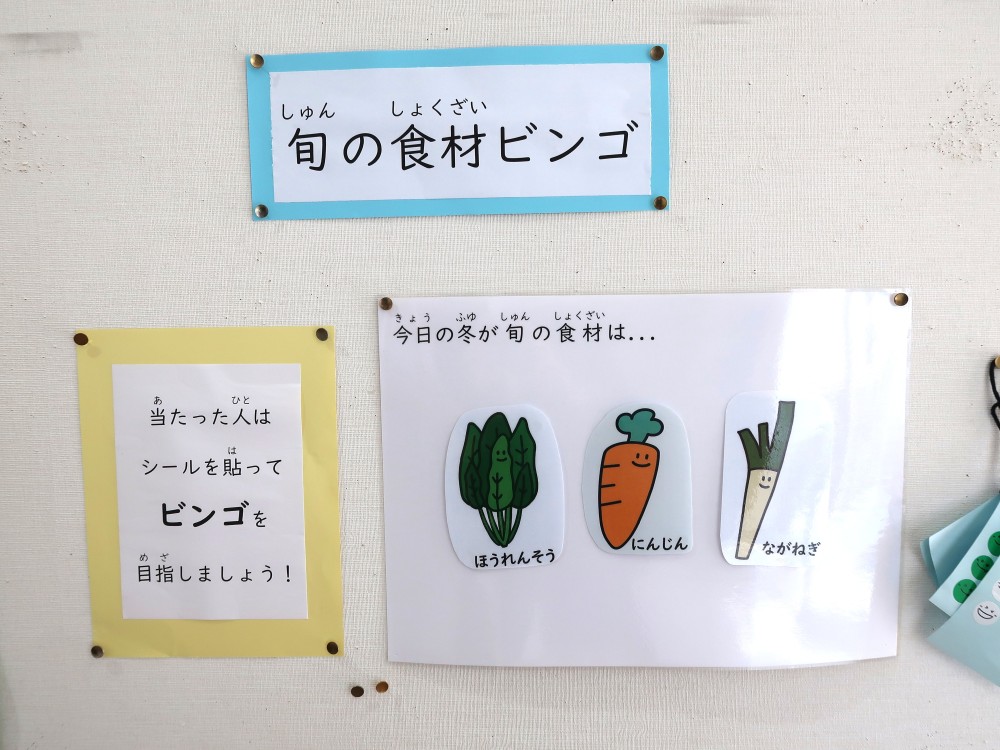 しゅん しょくざい
旬の食材ビンゴ
きょう ふゆ しゅん しょくざい
今日の冬が旬の食材は...
ほうれんそう
にんじん
ながねぎ
あ ひと
当たった人は
は
シールを貼って
ビンゴを
め ざ
目指しましょう!